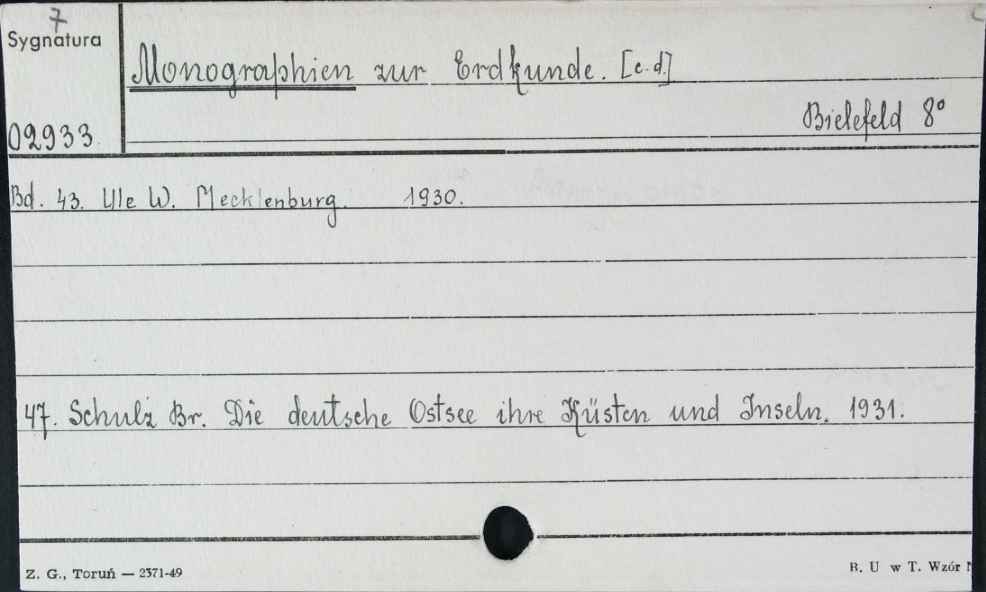 7
Sygnatura
Monographien zur Erdkunde. [c.d.]
Bielefeld 8°
02933.
Bd. 43. Ule W. Mecklenburg. 1930.
47. Schulz Br. Die deutsche Ostsee ihre Küsten und Inseln. 1931.
Z. G., Toruń — 2371-49
B. U w T. Wzór